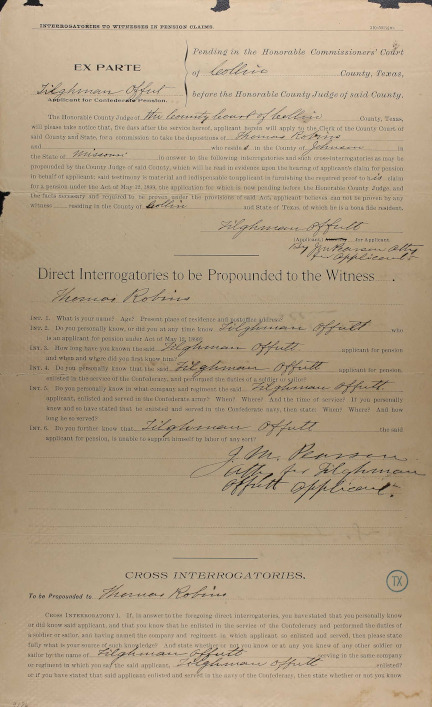 INTERROGATORIES TO WITNESSES IN PENSION CLAIMS.
EX PARTE
Tilghman Offutt
Applicant for Confederate Pension.
Pending in the Honorable Commissioners' Court
of Collin County, Texas,
before the Honorable County Judge of said County.
The Honorable County Judge of the County Court of Collin County, Texas,
will please take notice, that five days after the service hereof, applicant herein will apply to the Clerk of the County Court of
said County and State, for a commission to take the depositions of Thomas Robins
and who resides in the County of Johnson in
the State of Missouri to answer to the following interrogatories and such cross-interrogatories as may be
propounded by the County Judge of said County, which will be read in evidence upon the hearing of applicant's claim for pension
in behalf of applicant; said testimony is material and indispensable to applicant in furnishing the required proof to his claim
for a pension under the Act of May 12, 1899, the application for which is now pending before the Honorable County Judge, and
the facts necessary and required to be proven under the provision of said Act, applicant believes can not be proven by any
witness residing in the County of Collin and State of Texas, of which he is a bona fide resident.
Tilghman Offutt
(Applicant) for Applicant.
By J.M. Pearson Atty
for Applicant
Direct Interrogatories to be Propounded to the Witness
Thomas Robins
INT. 1. What is your name? Age? Present place of residence and postoffice address?
INT. 2. Do you personally know, or did you at any time know Tilghman Offutt who
is an applicant for pension under Act of May 12, 1899?
INT. 3. How long have you known the said Tilghman Offutt applicant for pension
and when and where did you first know him?
INT. 4. Do you personally know that the said Tilghman Offutt applicant for pension,
enlisted in the service of the Confederacy, and performed the duties of a soldier or sailor?
INT. 5. Do you personally know in what company and regiment the said Tilghman Offutt
applicant, enlisted and served in the Confederate army? When? Where? And the time of service? If you personally
know and so have stated that he enlisted and served in the Confederate navy, then state: When? Where? And how
long he so served?
INT. 6. Do you further know that Tilghman Offutt the said
applicant for pension, is unable to support himself by labor of any sort?
J. M. Pearson
Atty for Tilghman
Offutt applicant.
TX
CROSS INTERROGATORIES.
To be Propounded to Thomas Robins
CROSS INTERROGATORY 1. If, in answer to the foregoing direct interrogatories, you have stated that you personally know
or did know said applicant, and that you know that he enlisted in the service of the Confederacy and performed the duties of
a soldier or sailor, and having named the company and regiment in which applicant so enlisted and served, then please state
fully what is your source of such knowledge? And state whether or not you know or at any time knew of any other soldier or
sailor by the name of Tilghman Offutt serving in the same company
or regiment in which you say the said applicant, Tilghman Offutt enlisted?
or if you have stated that said applicant enlisted and served in the navy of the Confederacy, then state whether or not you know